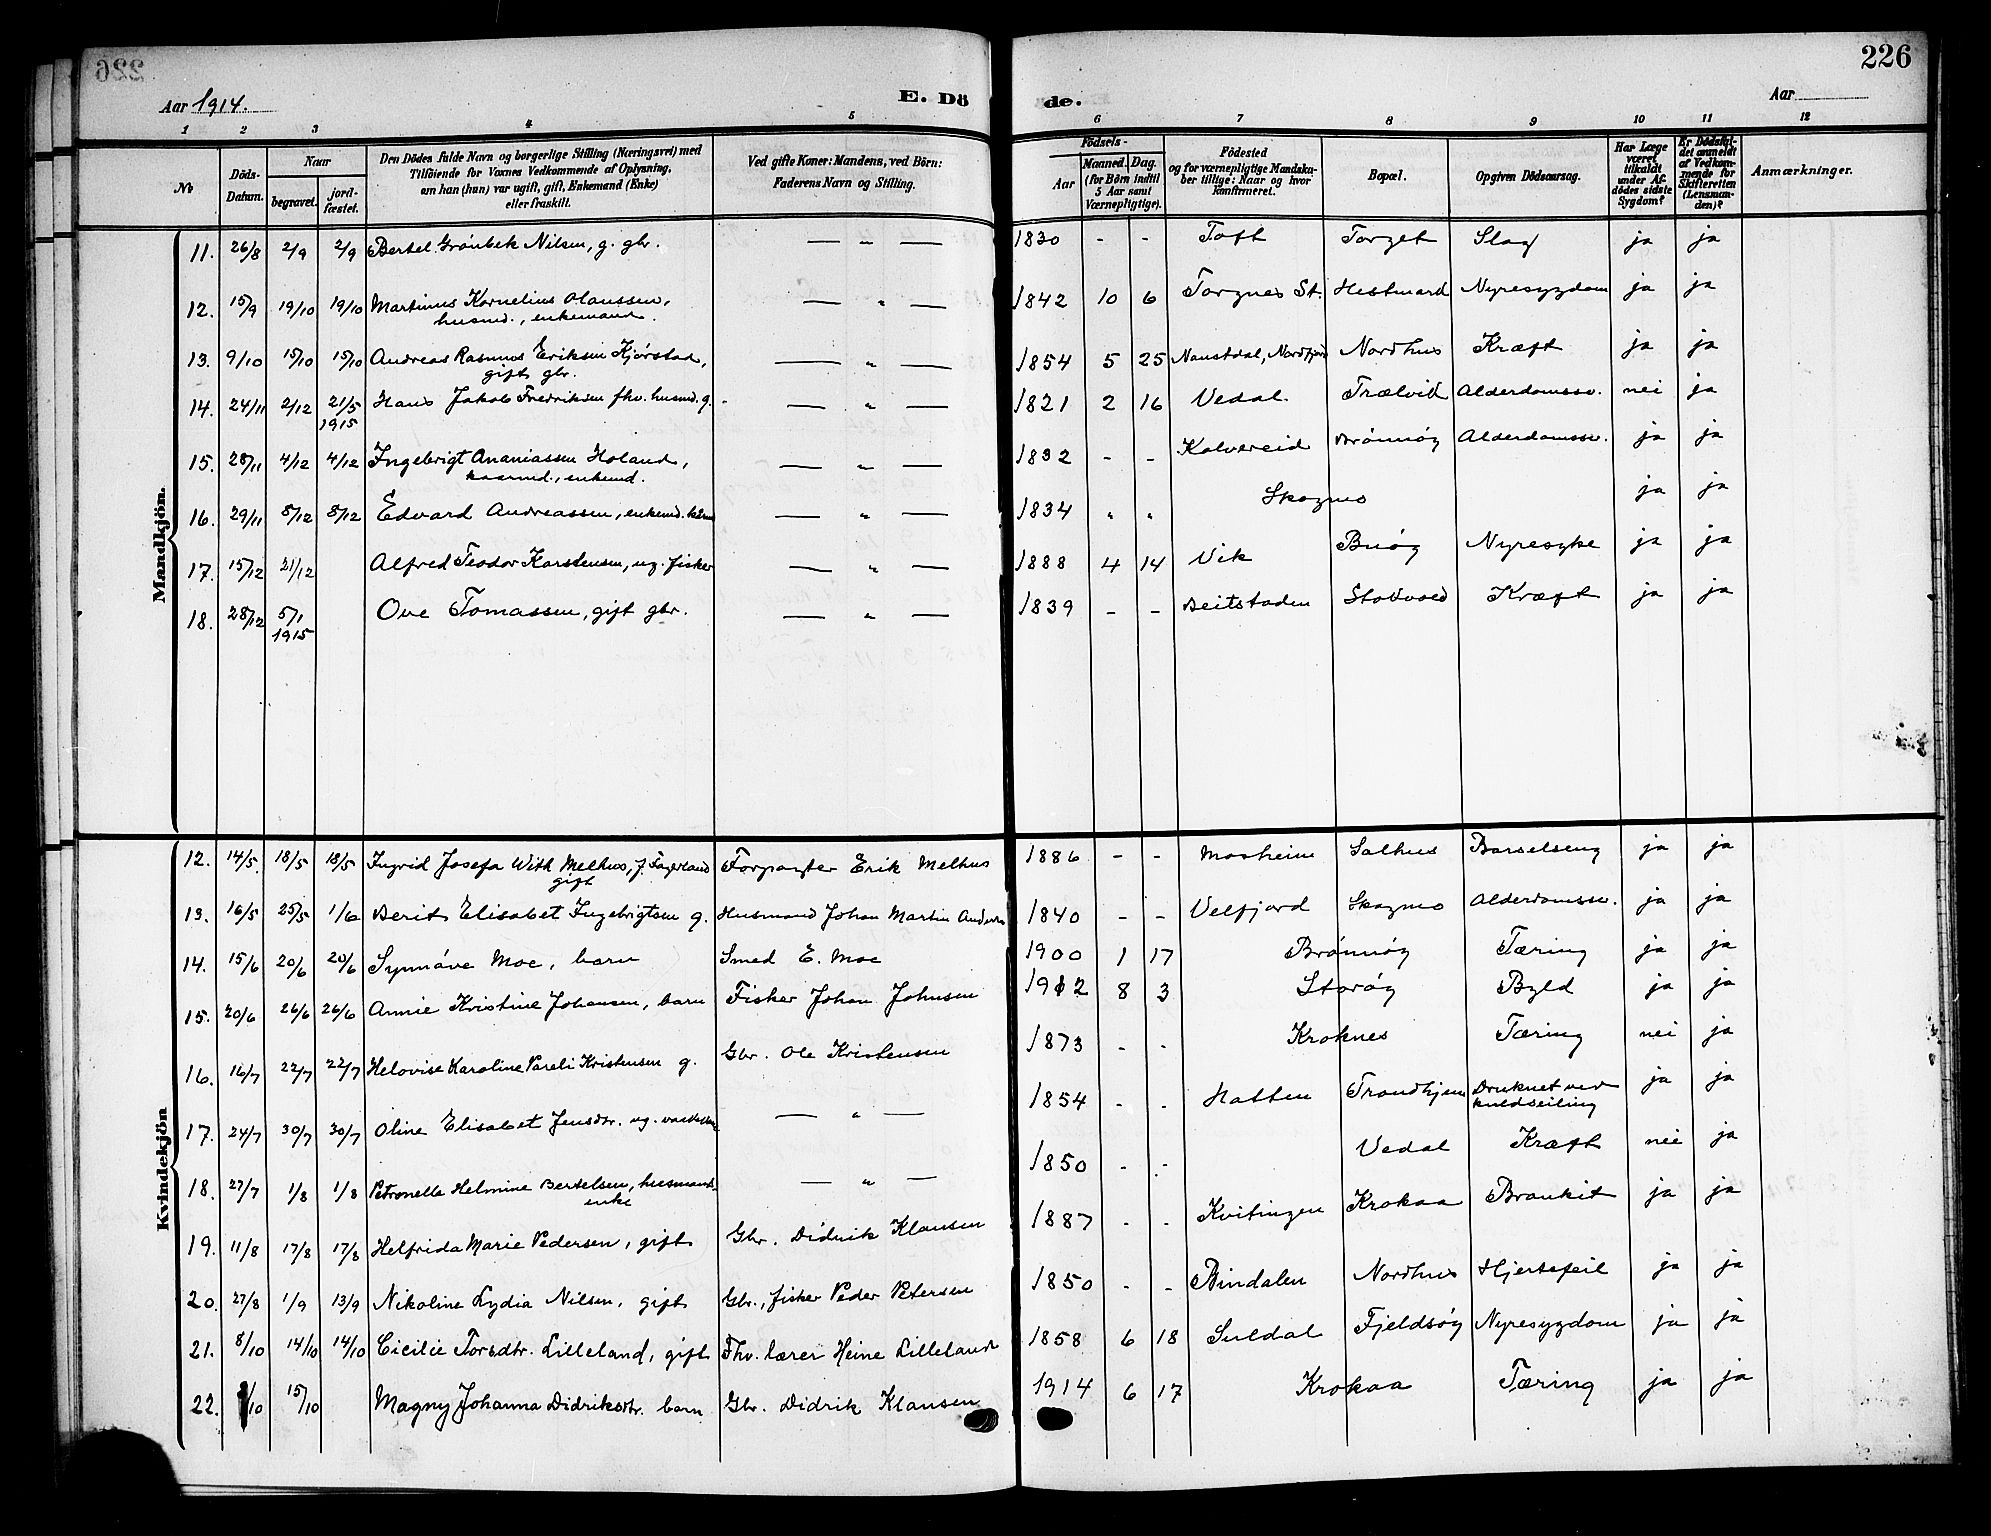 226
Aar 1914.
E. Dö
de.
Aar
1 2 3 4 5 6 7 8 9 10 11 12
No
Döds-Datum.
Naar
begravet.
jord-fæstet.
Den Dödes fulde Navn og borgerlige Stilling (Næringsvei) med
Tilföiende for Voxnes Vedkommende af Oplysning,
om han (hun) var ugift, gift, Enkemand (Enke)
eller fraskilt.
Ved gifte Koner: Mandens, ved Börn:
Faderens Navn og Stilling.
Födsels-
Aar
Maaned. Dag.
(for Börn indtil
5 Aar samt
Værnepligtige).
Födested
og for værnepligtige Mandska-
ber tillige: Naar og hvor
konfirmeret.
Bopæl.
Opgiven Dödsaarsag.
Har Læge
været
tilkaldt
under Af-
dödes sidste
Sygdom?
Er Dödsfal-
det anmeldt
af Vedkom-
mende for
Skifteretten
(Lensman-
den)?
Anmærkninger.
Mandkjön.
11. 26/8 2/9 2/9 Bertel Grönbek Nilsen, g. gbr. — " — 1830 - - Toft Torget Slag ja ja
12. 15/9 19/10 19/10 Martinus Kornelius Olaussen, — " — 1842 10 6 Torgnes St. Hestmard Nyresygdom ja ja
husmd., enkemand.
13. 9/10 15/10 15/10 Andreas Rasmus Eriksen Kjørstad, — " — 1854 5 25 Naustdal, Nordfjord Nordhus Kræft ja ja
gift gbr.
14. 24/11 2/12 21/5 Hans Jakob Fredriksen fhv. husmd. g. — " — 1821 2 16 Vedal Trælvik Alderdomssv. nei ja
1915
15. 28/11 4/12 4/12 Ingebrigt Ananiassen Holand, — " — 1832 - - Kalvereid Brönnöy Alderdomssv. ja ja
kaarmd., enkemd.
16. 29/11 8/12 8/12 Edvard Andreassen, enkemd. — " — 1834 " " Skogmo ja ja
17. 15/12 21/12 Alfred Teodor Karstensen, ug. fisker — " — 1888 4 14 Vik Buöy Nyresyke ja ja
18. 28/12 5/1 Ove Tomassen, gift gbr. — " — 1839 - - Beitstaden Kræft ja ja
1915
Kvindekjön
12. 14/5 18/5 18/5 Ingrid Josefa With Melhus, f. Fagerland Forpagter Erik Melhus 1886 - - Mosheim Salhus Barselseng ja ja
gift
13. 16/5 25/5 1/6 Berit Elisabet Ingebrigtsen g. Husmand Johan Martin Andersen 1840 - - Velfjord Skogmo Alderdomssv. ja ja
14. 15/6 20/6 20/6 Synnöve Moe, barn Smed E. Moe 1900 1 17 Brönnöy Tæring ja ja
15. 20/6 26/6 26/6 Annie Kristine Johansen, barn Fisker Johan Johnsen 1912 8 3 Storöy Byld ja ja
16. 16/7 22/7 22/7 Helovise Karoline Pareli Kristensen g. Gbr. Ole Kristensen 1873 - - Kroknes Tæring nei ja
17. 24/7 30/7 30/7 Oline Elisabet Jensdtr. ug. — " — 1854 - - Hatten Trondhjem Druknet ved ja ja
kuldseiling
18. 27/7 1/8 1/8 Petronelle Helmine Bertelsen, husmands- — " — 1850 - - Vedal Kræft nei ja
enke
19. 11/8 17/8 17/8 Helfrida Marie Pedersen, gift Gbr. Didrik Klausen 1887 - - Kvitingen Krokaa Bronkit ja ja
20. 27/8 1/9 13/9 Nikoline Lydia Nilsen, gift Gbr., fisker Peder Petersen 1850 - - Bindalen Nordhus Hjertefeil ja ja
21. 8/10 14/10 14/10 Cicilie Torsdtr. Lilleland, gift Fhv. lærer Heine Lilleland 1858 6 18 Suldal Fjeldsöy Nyresygdom ja ja
22. /10 15/10 Magny Johanna Didriksdtr. barn Gbr. Didrik Klausen 1914 6 17 Krokaa Tæring ja ja